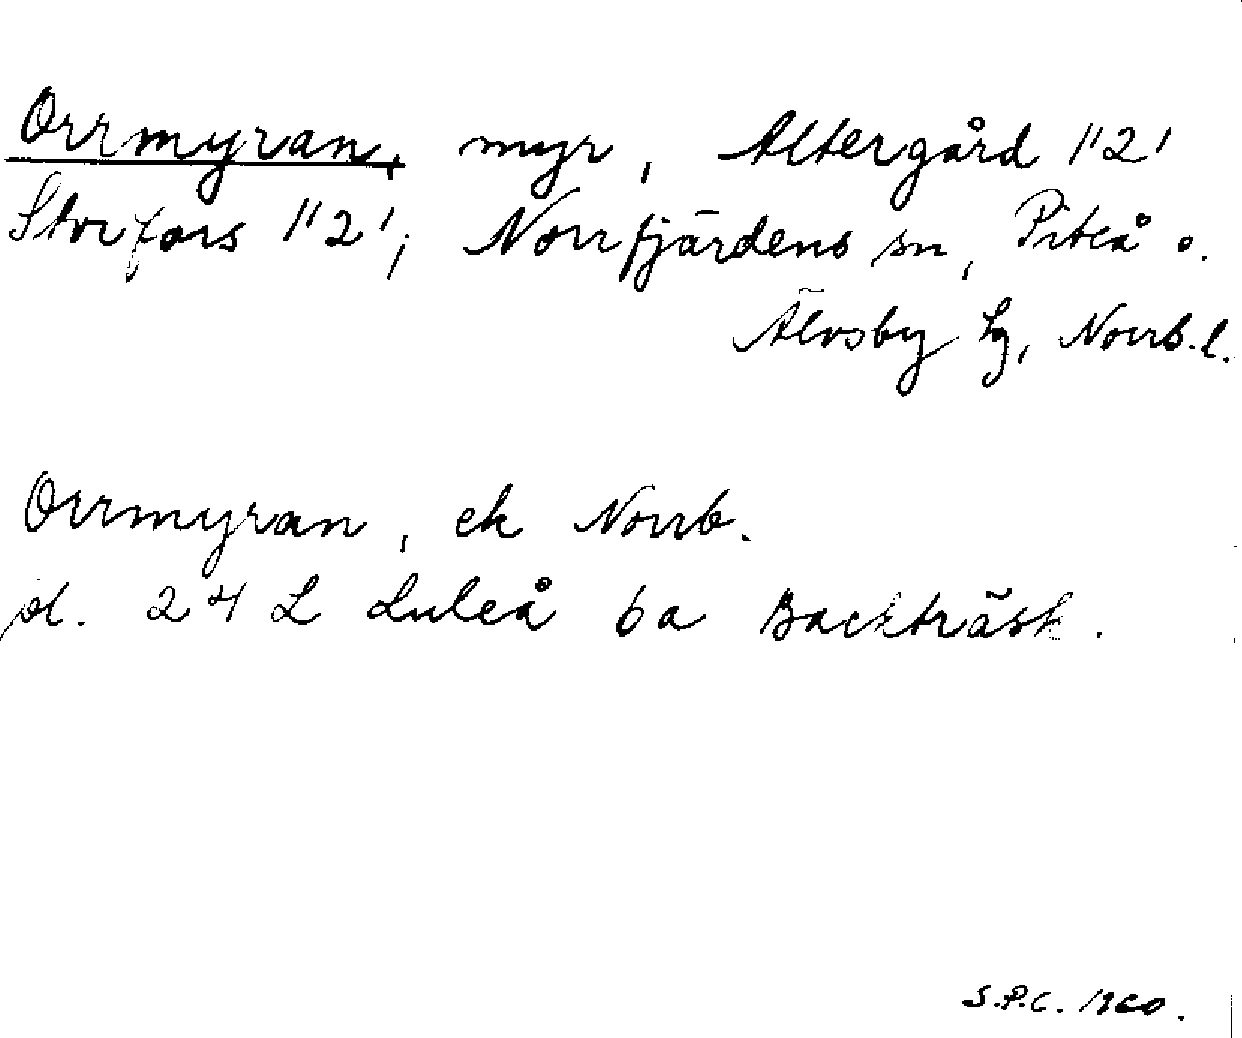 Orrmyran, myr, Altergård 1"2'
Storfors 1"2'; Norrfjärdens sn, Piteå o.
Älvsby tg, Norrb.l.
Orrmyran, ek Norrb.
bl. 24 L Luleå 6a Backträsk.
S.P.C. 1960.